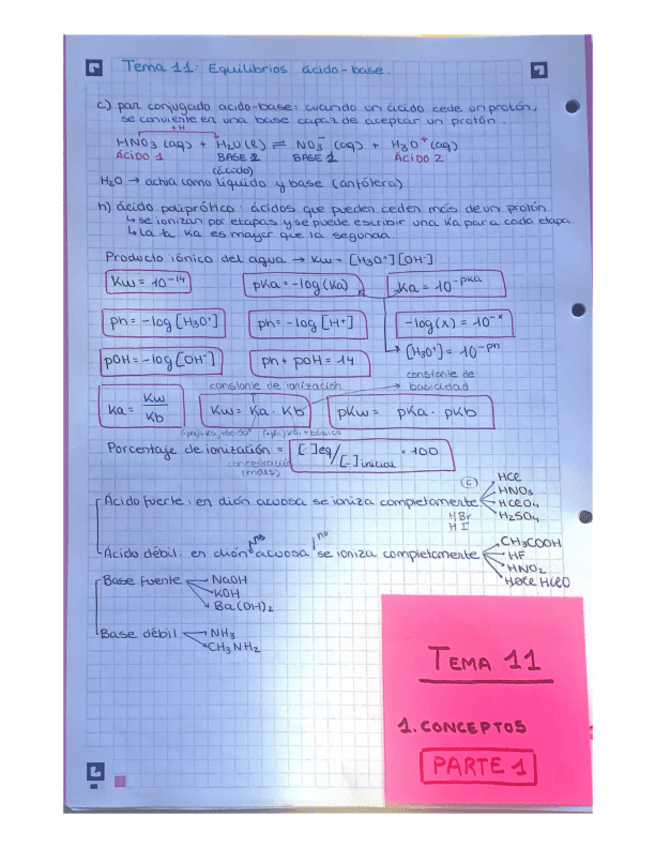 Tema 11: Equilibrios ácido-base.
c) par conjugado ácido-base: cuando un ácido cede un protón,
se convierte en una base capaz de aceptar un protón.
+H
HNO3 (aq) + H2O(l) ⇌ NO3⁻ (aq) + H3O⁺ (aq)
ÁCIDO 1 BASE 2 BASE 1 ÁCIDO 2
(ácido)
H2O → actúa como líquido y base (anfótera)
h) ácido poliprótico: ácidos que pueden ceden más de un protón.
↳ se ionizan por etapas y se puede escribir una Ka para cada etapa.
↳ La 1ª Ka es mayor que la segunda.
Producto iónico del agua → Kw = [H3O⁺][OH⁻]
Kw = 10⁻¹⁴ pKa = -log(Ka) Ka = 10⁻ᵖᴷᵃ
ph = -log[H3O⁺] ph = -log[H⁺] -log(x) = 10⁻ˣ
→ [H3O⁺] = 10⁻ᵖʰ
pOH = -log[OH⁻] ph + pOH = 14
constante de ionización
constante de
→ basicidad
Ka = Kw/Kb Kw = Ka · Kb pKw = pKa · pKb
Porcentaje de ionización = [ ]eq/[ ]inicial · 100
concentración
(moles)
Ácido fuerte: en dión acuosa se ioniza completamente
(c)
HCl
HNO3
HClO4
H2SO4
HBr
HI
Ácido débil: en dión acuosa no se ioniza completamente
no
CH3COOH
HF
HNO2
HClO
Base fuerte
NaOH
KOH
Ba(OH)2
Base débil
NH3
CH3NH2
TEMA 11
1. CONCEPTOS
PARTE 1